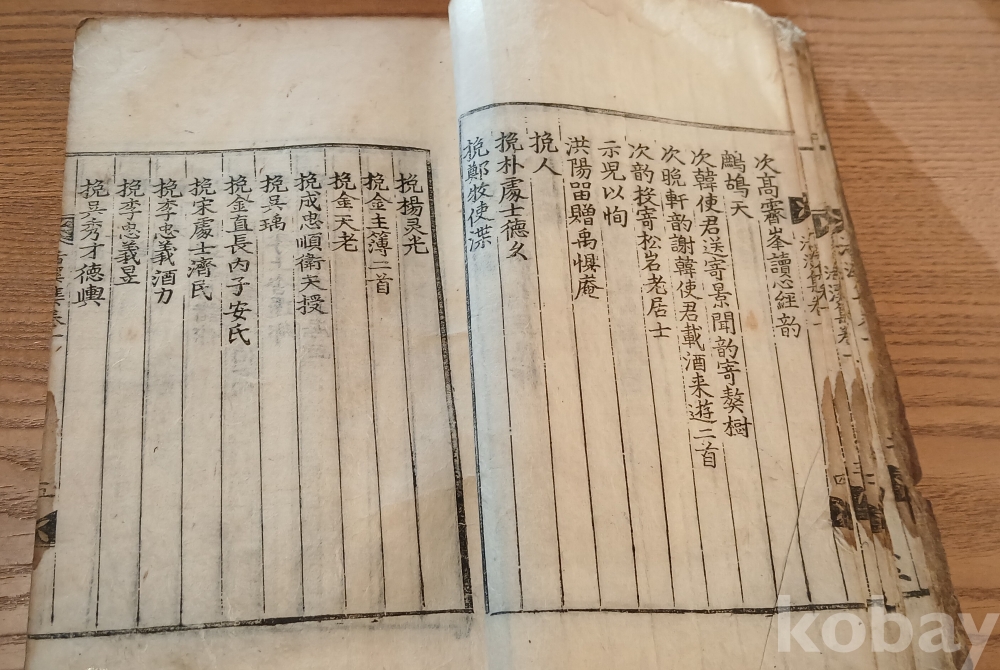 次高霽峯讀心經韵
鷓鴣天
次韓使君送寄景聞韵寄獒樹
次晩軒韵謝韓使君載酒来遊二首
次韵投寄松岩老居士
示児以恂
洪陽留贈禹惧菴
挽人
挽朴處士德幺
挽鄭牧使渫
挽楊灵光
挽金主簿二首
挽金天老
挽成忠順衛天授
挽吴瑀
挽金直長内子安氏
挽宋處士濟民
挽李忠義酒力
挽李忠義昱
挽吴秀才德輿
四
五
kobay